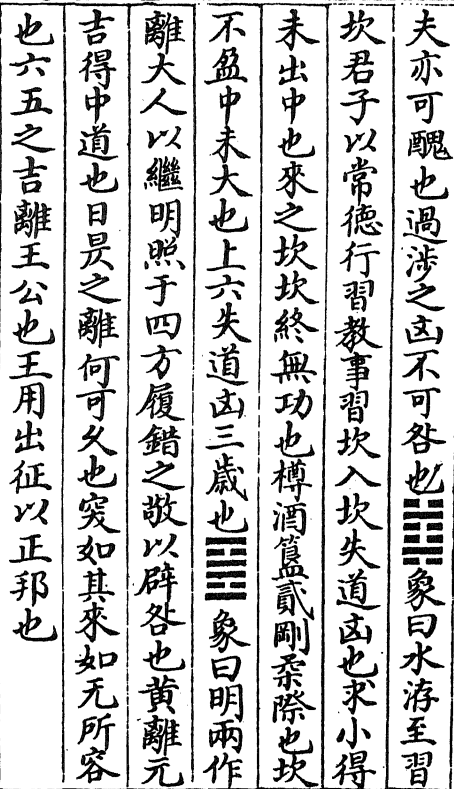 夫亦可醜也過涉之凶不可咎也䷜象曰水洊至習
坎君子以常德行習教事習坎入坎失道凶也求小得
未出中也來之坎坎終無功也樽酒簋貳剛柔際也坎
不盈中未大也上六失道凶三歲也䷝象曰明兩作
離大人以繼明照于四方履錯之敬以辟咎也黃離元
吉得中道也日昃之離何可久也突如其來如无所容
也六五之吉離王公也王用出征以正邦也